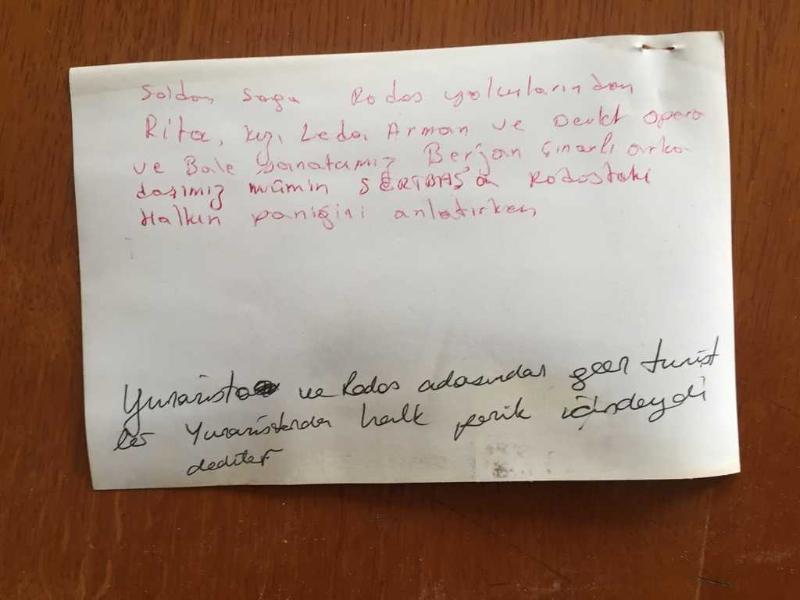 Soldan Sağa Rodos yolcularından
Rita, kızı Leda, Arman ve Devlet opera
ve Bale Sanatcımız Berjan Çınarlı arka-
daşımız mümin SERTBAŞ'a Rodostaki
Halkın paniğini anlatırken
Yunanistan ve Rodos adasından gelen turist
ler Yunanistanda halk panik içindeydi
dediler